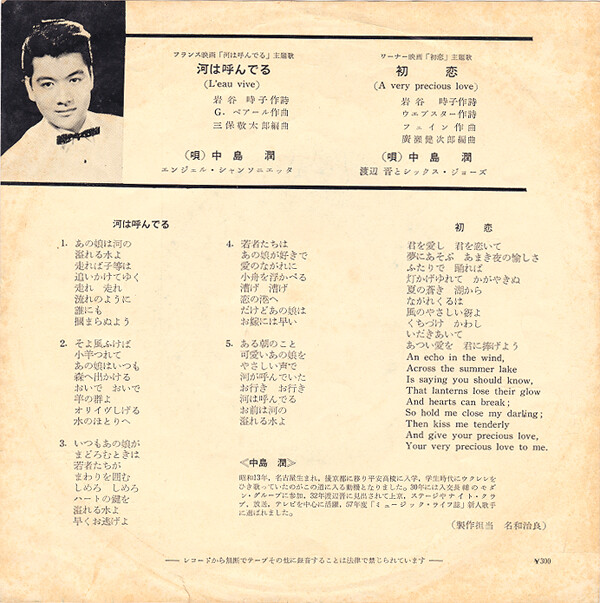 フランス映画「河は呼んでる」主題歌
河は呼んでる
(L'eau vive)
岩谷 時子作詩
G. ベアール作曲
三保敬太郎編曲
(唄) 中島 潤
エンジェル・シャンソニエッタ
ワーナー映画「初恋」主題歌
初 恋
(A very precious love)
岩谷 時子作詩
ウエブスター作詩
フェイン作曲
廣瀬健次郎編曲
(唄) 中島 潤
渡辺 晋とシックス・ジョーズ
河は呼んでる
1. あの娘は河の
溢れる水よ
走れば子等は
追いかけてゆく
走れ 走れ
流れのように
誰にも
摑まらぬよう
2. そよ風ふけば
小羊つれて
あの娘はいつも
森へ出かける
おいで おいで
羊の群よ
オリイヴしげる
水のほとりへ
3. いつもあの娘が
まどろむときは
若者たちが
まわりを囲む
しめろ しめろ
ハートの鍵を
溢れる水よ
早くお逃げよ
4. 若者たちは
あの娘が好きで
愛のながれに
小舟を浮かべる
漕げ 漕げ
恋の港へ
だけどあの娘は
お嫁には早い
5. ある朝のこと
可愛いあの娘を
やさしい声で
河が呼んでいた
お行き お行き
河は呼んでる
お前は河の
溢れる水よ
初 恋
君を愛し 君を恋いて
夢にあそぶ あまき夜の愉しさ
ふたりで 踊れば
灯かげゆれて かがやきぬ
夏の蒼き 湖から
ながれくるは
風のやさしい谺よ
くちづけ かわし
いだきあいて
あつい愛を 君に捧げよう
An echo in the wind,
Across the summer lake
Is saying you should know,
That lanterns lose their glow
And hearts can break;
So hold me close my darling;
Then kiss me tenderly
And give your precious love,
Your very precious love to me.
≪中島 潤≫
昭和13年、名古屋生まれ、後京都に移り平安高校に入学、学生時代にウクレレン
をひき歌っていたのがこの道に入る動機となりました。30年には入交長輔のモダ
ン・グループに参加、32年渡辺晋に見出されて上京、ステージやナイト・クラ
ブ、放送、テレビを中心に活躍、57年度「ミュージック・ライフ誌」新人歌手
に選ばれました。
(製作担当 名和治良)
── レコードから無断でテープその他に録音することは法律で禁じられています ──
¥300